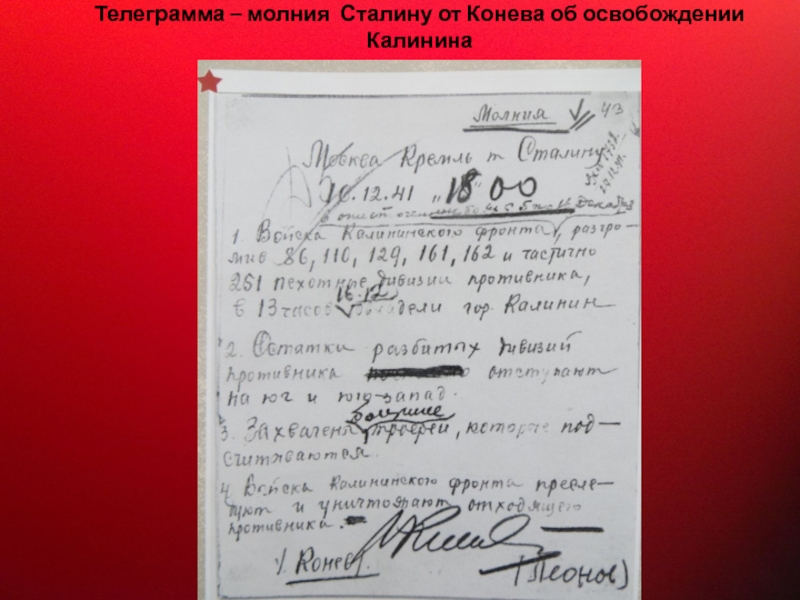 Телеграмма – молния Сталину от Конева об освобождении
Калинина
Молния
43
Москва Кремль т Сталину
16.12.41 „18 00
с 5 по 16 декабря
1. Войска Калининского фронта, разгро–
мив 86, 110, 129, 161, 162 и частично
251 пехотные дивизии противника,
16.12
в 13 часов овладели гор. Калинин
2. Остатки разбитых дивизий
противника отступают
на юг и юго-запад.
большие
3. Захвачены трофеи, которые под–
считываются.
4 Войска Калининского фронта пресле–
дуют и уничтожают отходящего
противника.
Конев
(Леонов)